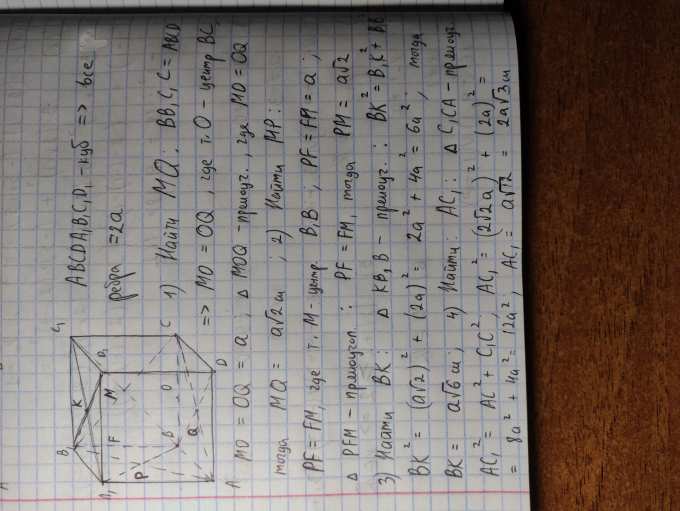 ABCDA₁B₁C₁D₁ - куб => все
ребра = 2a.
1) Найти MQ: BB₁C₁C = ABCD
=> MO = OQ, где т. O - центр BC,
MO = OQ = a; △ MOQ - прямоуг., где MO = OQ
тогда MQ = a√2 ш; 2) Найти MP:
PF = FM, где т. M - центр. B₁B; PF = FM = a;
△ PFM - прямоугол: PF = FM, тогда PM = a√2
3) Найти BK: △ KB₁B - прямоуг.: BK² = B₁K² + BB
BK² = (a√2)² + (2a)² = 2a² + 4a² = 6a², тогда
BK = a√6 ш; 4) Найти: AC₁: △ C₁CA - прямоуг.
AC₁² = AC² + C₁C²; AC₁² = (2√2a)² + (2a)² =
= 8a² + 4a² = 12a², AC₁ = a√12 = 2a√3 ш
B₁
C₁
K
A₁
D₁
M
F
P
B
O
C
Q
A
D